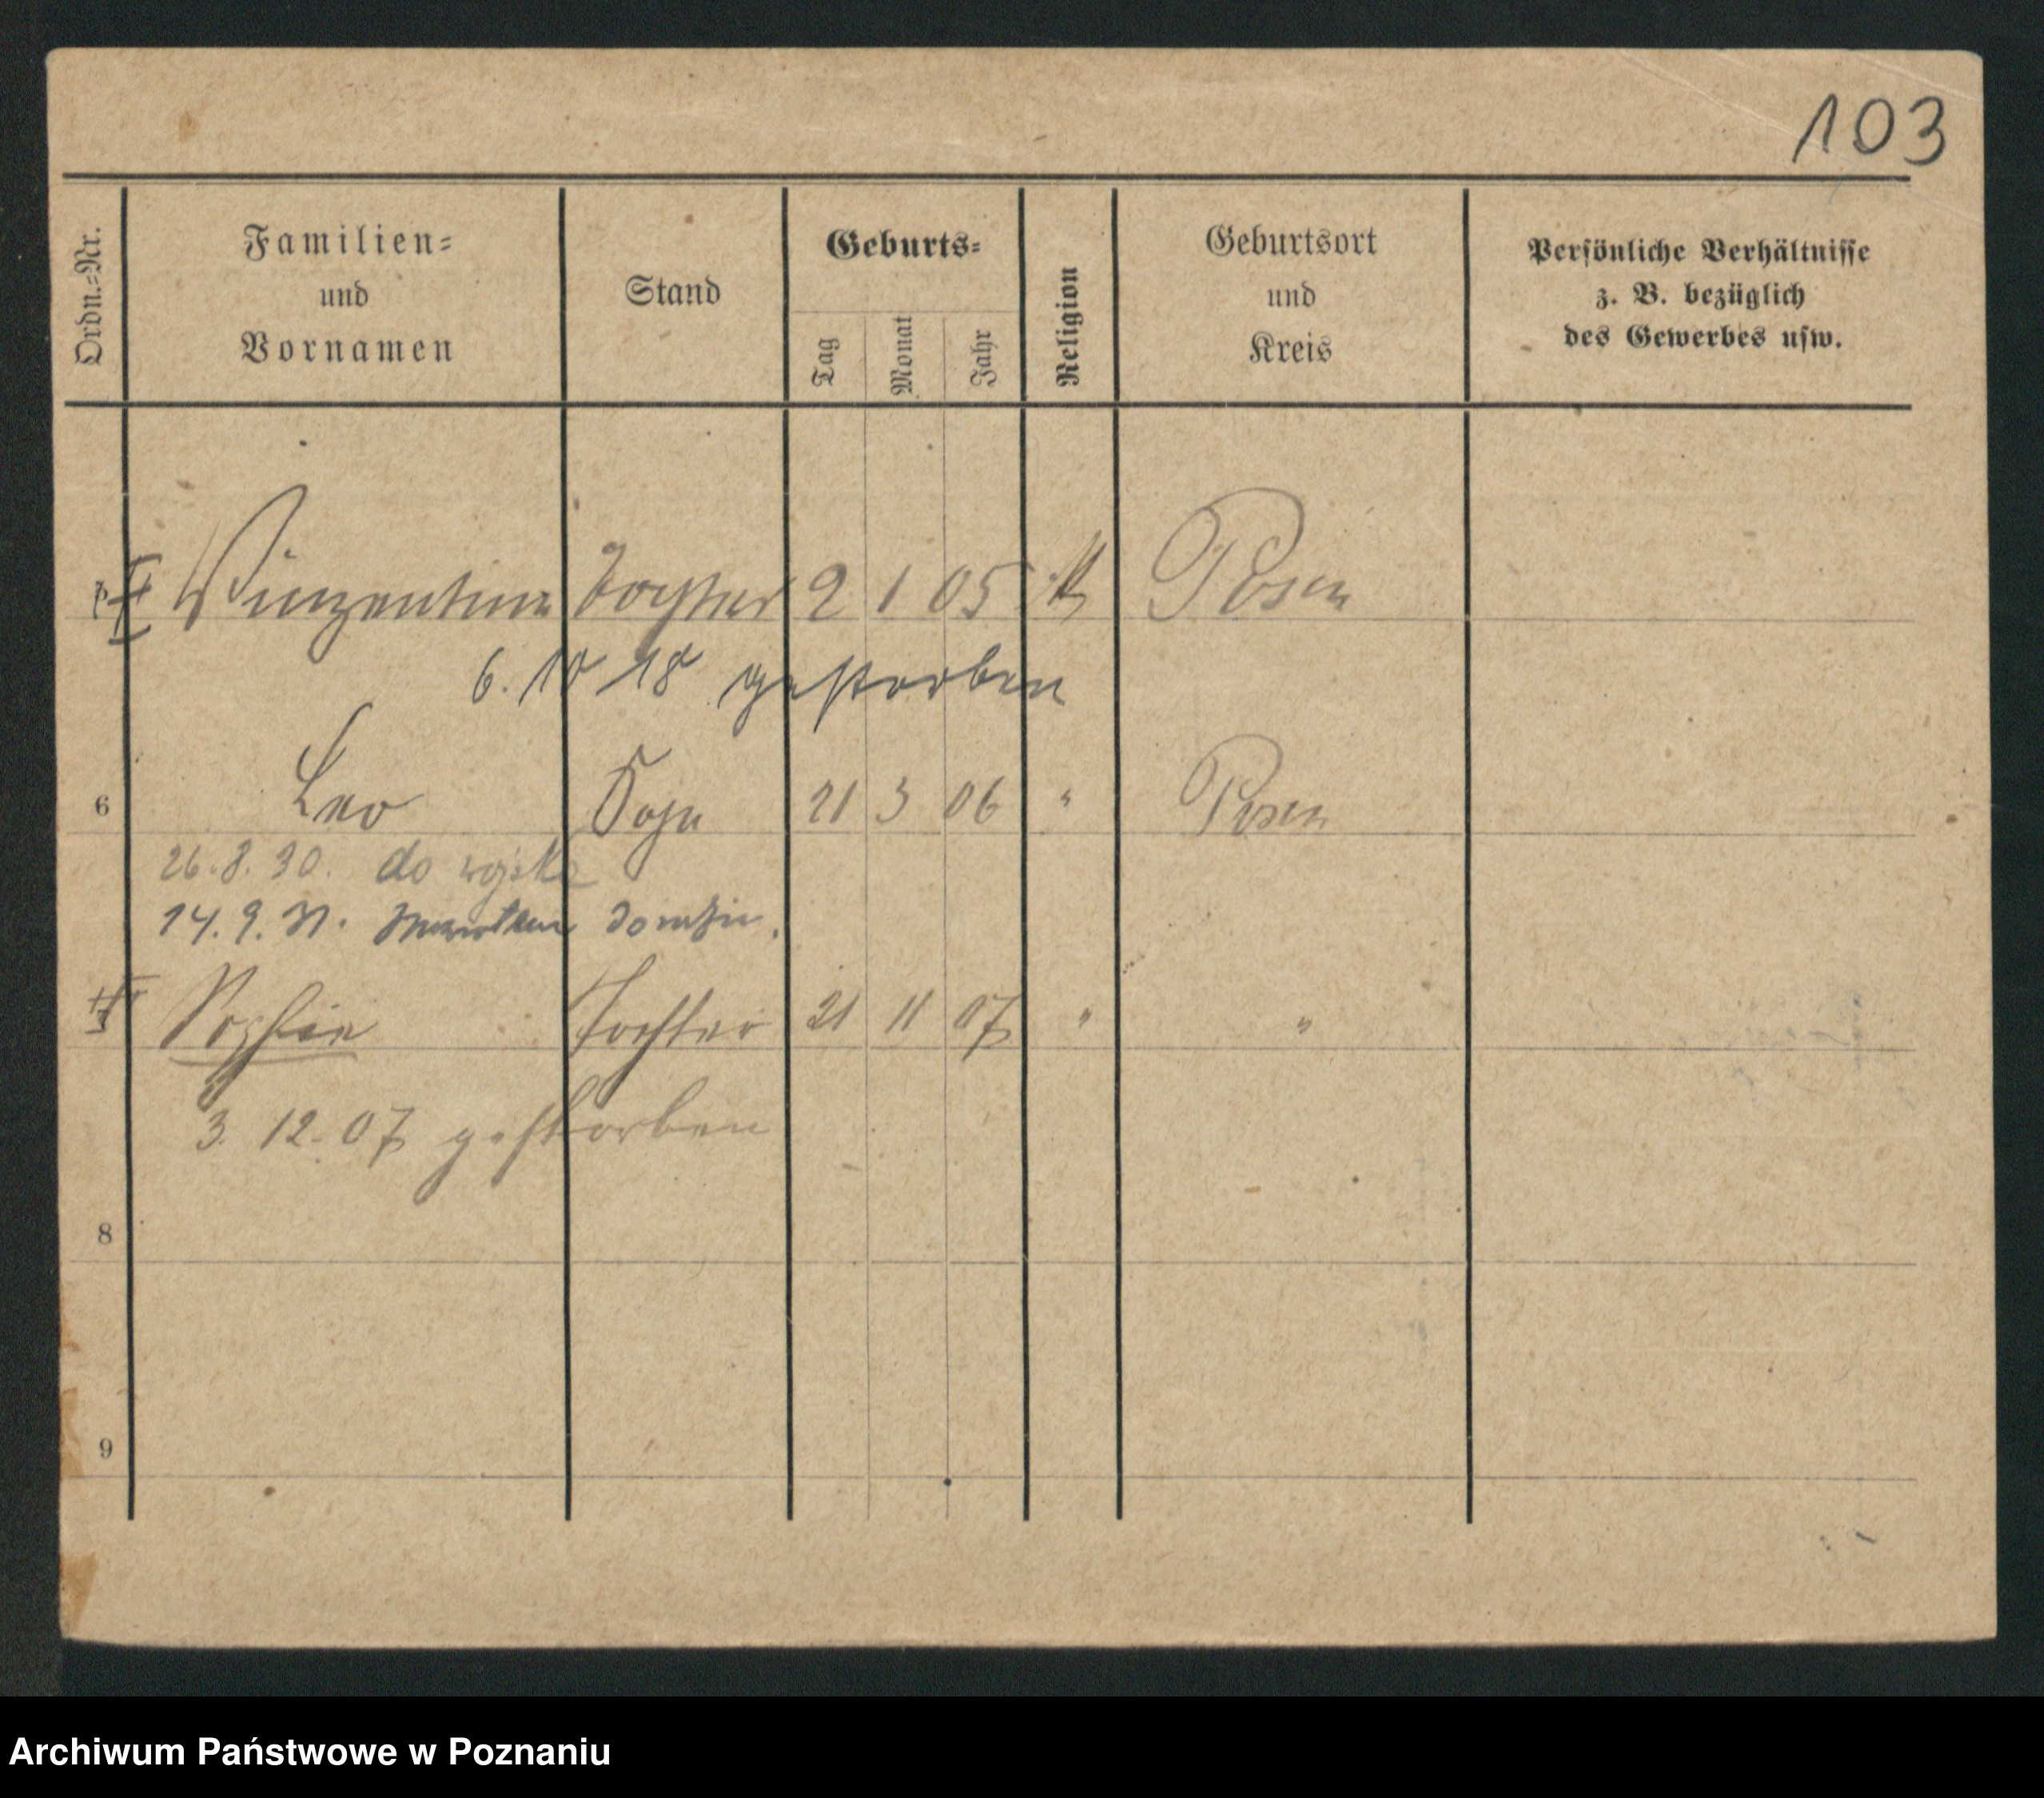 103
Ordn.-Nr.
Familien-
und
Vornamen
Stand
Geburts-
Tag
Monat
Jahr
Religion
Geburtsort
und
Kreis
Persönliche Verhältnisse
z. B. bezüglich
des Gewerbes usw.
Vinzentine Tochter 2 1 05 Posen
6. 10 18 gestorben
6 Leo Sohn 21 3 06 " Posen
26.8.30. do wojska
14.9.31.
Sophie Tochter 21 11 07 " "
3. 12. 07 gestorben
8
9
Archiwum Państwowe w Poznaniu